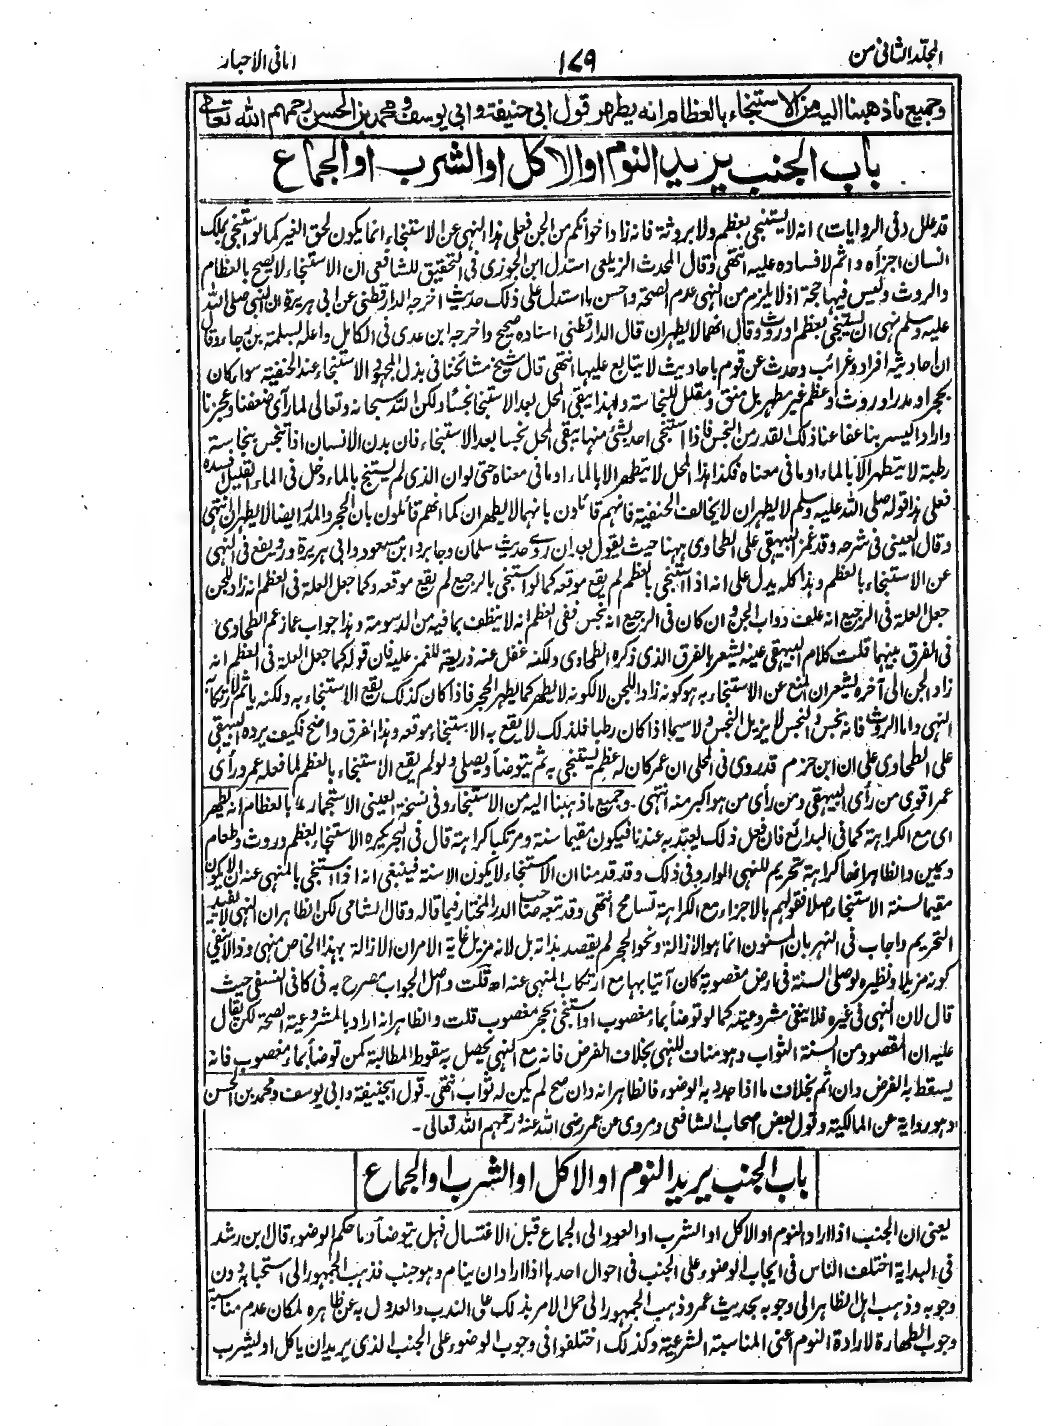 المجلد الثاني من ١٧٩ اماني الاحبار
وجميع ما ذهبنا اليه من الاستنجاء بالعظام انه يطهر قول ابي حنيفة وابي يوسف ومحمد بن الحسن رحمهم الله تعالى
باب الجنب يريد النوم او الاكل او الشرب او الجماع
قد علل (في الروايات) انه لا يستنجي بعظم ولا بروثة فانه زاد اخوانكم من الجن فعلى هذا النهي عن الاستنجاء انما يكون لحق الغير كما لو استنجى بملك
انسان اجزأه واثم لافساده عليه انتهى وقال المحدث الزيلعي استدل ابن الجوزي في التحقيق للشافعي ان الاستنجاء لا يصح بالعظام
والروث وليس فيها حجة اذ لا يلزم من النهي عدم الصحة واحسن ما استدل على ذلك حديث اخرجه الدارقطني عن ابي هريرة ان النبي صلى الله
عليه وسلم نهى ان يستنجى بعظم او روث وقال انهما لا يطهران قال الدارقطني اسناده صحيح واخرجه ابن عدي في الكامل واعله بسلمة بن رجاء وقال
ان احاديثه افراد وغرائب وحدث عن قوم باحاديث لا يتابع عليها انتهى قال شيخ مشائخنا في بذل المجهود الاستنجاء عند الحنفية سواء كان
بحجر او مدر او روث او عظم غير مطهر بل منق ومقلل للنجاسة ولهذا يبقى المحل بعد الاستنجاء نجسا ولكن الله سبحانه وتعالى لما رأى ضعفنا وعجزنا
واراد اليسر بنا عفا عنا ذلك القدر من النجس فاذا استنجى احد بشئ منها يبقى المحل نجسا بعد الاستنجاء فان بدن الانسان اذا تنجس بنجاسة
رطبة لا يتطهر الا بالماء او ما في معناه فكذا هذا المحل لا يتطهر الا بالماء او ما في معناه حتى لو ان الذي لم يستنج بالماء دخل في الماء القليل افسده
فعلى هذا قوله صلى الله عليه وسلم لا يطهران لا يخالف الحنفية فانهم قائلون بانهما لا يطهران كما انهم قائلون بان الحجر والمدر ايضا لا يطهران انتهى
وقال العيني في شرحه وقد غمز البيهقي على الطحاوي ههنا حيث يقول بعد ان روى حديث سلمان وجابر وابن مسعود وابي هريرة ورويفع في النهي
عن الاستنجاء بالعظم وهذا كله يدل على انه اذا استنجى بالعظم لم يقع موقعه كما لو استنجى بالرجيع لم يقع موقعه وكما جعل العلة في العظم انه زاد للجن
جعل العلة في الرجيع انه علف دواب الجن وان كان في الرجيع انه نجس ففي العظم انه لا ينظف بما فيه من الدسومة وهذا جواب عما زعم الطحاوي
في الفرق بينهما قلت كلام البيهقي عينه يشعر بالفرق الذي ذكره الطحاوي ولكنه غفل عنه ذريعة للغمز عليه فان قوله كما جعل العلة في العظم انه
زاد الجن الى آخره يشعر ان المنع عن الاستنجاء به هو كونه زادا للجن لا لكونه لا يطهر كما يطهر الحجر فاذا كان كذلك يقع الاستنجاء به ولكنه يأثم لارتكابه
النهي واما الروث فانه نجس والنجس لا يزيل النجس ولا سيما اذا كان رطبا فلذلك لا يقع به الاستنجاء موقعه وهذا فرق واضح فكيف يرده البيهقي
على الطحاوي على ان ابن حزم قد روى في المحلى ان عمر كان له عظم يستنجي به ثم يتوضأ ويصلي ولو لم يقع الاستنجاء بالعظم لما فعله عمر ورأى
عمر اقوى من رأى البيهقي ومن رأى من هو اكبر منه انتهى. وجميع ما ذهبنا اليه من الاستنجاء وفي نسخة العيني الاستجمار بالعظام انه يطهر
اي مع الكراهة كما في البدائع فان فعل ذلك يعتد به عندنا فيكون مقيما سنة ومرتكبا كراهة قال في البحر يكره الاستنجاء بعظم وروث وطعام
ويمين والظاهر انها كراهة تحريم للنهي الوارد في ذلك وقد قدمنا ان الاستنجاء لا يكون الا سنة فينبغي انه اذا استنجى بالمنهي عنه ان لا يكون
مقيما لسنة الاستنجاء اصلا فقولهم بالاجزاء مع الكراهة تسامح انتهى وقد تبعه صاحب الدر المختار فيما قاله وقال الشامي لكن الظاهر ان النهي لا يفيد
التحريم واجاب في النهر بان المسنون انما هو الازالة ونحو الحجر لم يقصد بذاته بل لانه مزيل غاية الامر ان الازالة بهذا الخاص منهي وذا لا ينفي
كونه مزيلا ونظيره لو صلى السنة في ارض مغصوبة كان آتيا بها مع ارتكاب المنهي عنه اه قلت واصل الجواب مصرح به في كافي النسفي حيث
قال لان النهي في غيره فلا ينفي مشروعيته كما لو توضأ بماء مغصوب او استنجى بحجر مغصوب قلت والظاهر انه اراد بالمشروعية الصحة لكن يقال
عليه ان المقصود من السنة الثواب وهو مناف للنهي بخلاف الفرض فانه مع النهي يحصل به سقوط المطالبة كمن توضأ بماء مغصوب فانه
يسقط به الفرض وان اثم بخلاف ما اذا جدد به الوضوء فالظاهر انه وان صح لم يكن له ثواب انتهى. قول ابي حنيفة وابي يوسف ومحمد بن الحسن
وهو رواية عن المالكية وقول بعض اصحاب الشافعي ومروي عن عمر رضي الله عنه رحمهم الله تعالى.
باب الجنب يريد النوم او الاكل او الشرب او الجماع
يعني ان الجنب اذا اراد النوم او الاكل او الشرب او العود الى الجماع قبل الاغتسال فهل يتوضأ وما حكم الوضوء قال ابن رشد
في البداية اختلف الناس في ايجاب الوضوء على الجنب في احوال احدها اذا اراد ان ينام وهو جنب فذهب الجمهور الى استحبابه دون
وجوبه وذهب اهل الظاهر الى وجوبه بحديث عمر وذهب الجمهور الى حمل الامر بذلك على الندب والعدول به عن ظاهره لمكان عدم مناسبة
وجوب الطهارة لارادة النوم اعني المناسبة الشرعية وكذلك اختلفوا في وجوب الوضوء على الجنب الذي يريد ان ياكل او يشرب